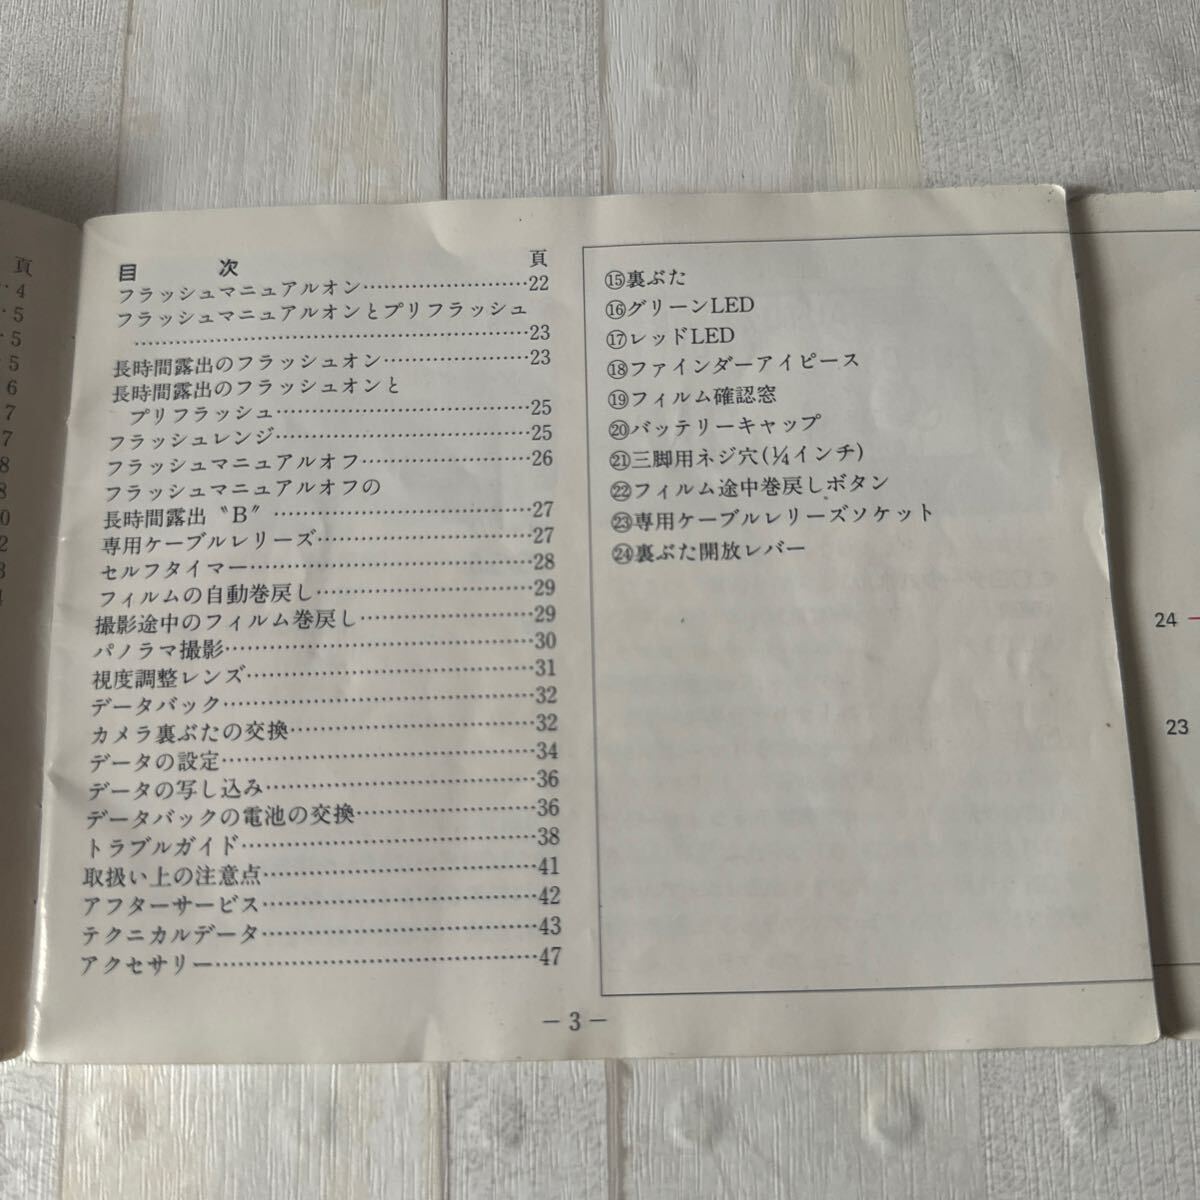 頁
4
5
5
5
6
7
7
8
8
0
2
3
4
目 次 頁
フラッシュマニュアルオン……………………22
フラッシュマニュアルオンとプリフラッシュ
……………………………………………………23
長時間露出のフラッシュオン…………………23
長時間露出のフラッシュオンと
プリフラッシュ………………………………25
フラッシュレンジ………………………………25
フラッシュマニュアルオフ……………………26
フラッシュマニュアルオフの
長時間露出〝B〟………………………………27
専用ケーブルレリーズ…………………………27
セルフタイマー…………………………………28
フィルムの自動巻戻し…………………………29
撮影途中のフィルム巻戻し……………………29
パノラマ撮影……………………………………30
視度調整レンズ…………………………………31
データバック……………………………………32
カメラ裏ぶたの交換……………………………32
データの設定……………………………………34
データの写し込み………………………………36
データバックの電池の交換……………………36
トラブルガイド…………………………………38
取扱い上の注意点………………………………41
アフターサービス………………………………42
テクニカルデータ………………………………43
アクセサリー……………………………………47
⑮裏ぶた
⑯グリーンLED
⑰レッドLED
⑱ファインダーアイピース
⑲フィルム確認窓
⑳バッテリーキャップ
㉑三脚用ネジ穴(¼インチ)
㉒フィルム途中巻戻しボタン
㉓専用ケーブルレリーズソケット
㉔裏ぶた開放レバー
24
23
— 3 —